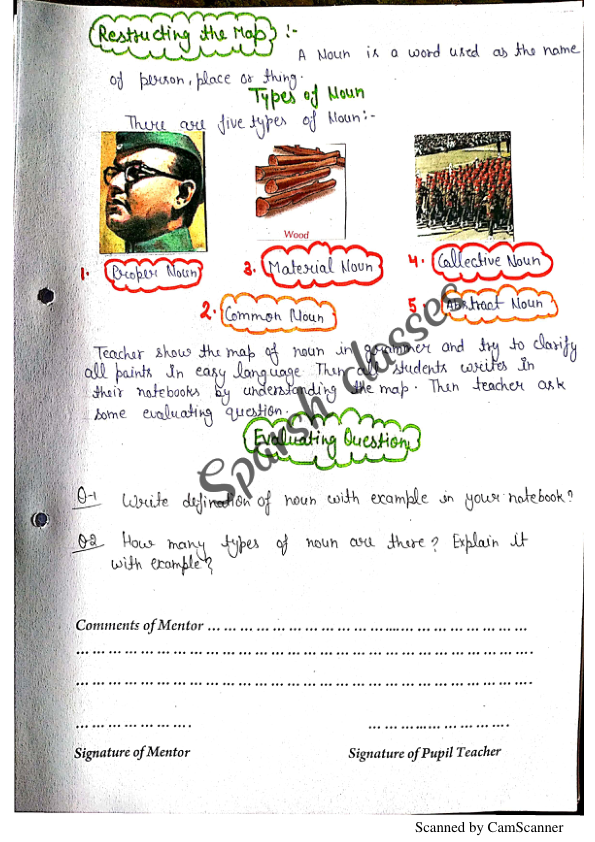 Restructing the Map :-
A Noun is a word used as the name
of person, place or thing.
Types of Noun
There are five types of Noun:-
Wood
1. Proper Noun
3. Material Noun
4. Collective Noun
2. Common Noun
5. Abstract Noun
Teacher show the map of noun in grammer and try to clarify
all points in easy language. Then all students writes in
their notebooks by understanding the map. Then teacher ask
some evaluating question.
Evaluating Question
Q-1 Write defination of noun with example in your notebook?
Q-2 How many types of noun are there? Explain it
with example?
Sparsh classes
Comments of Mentor ........................................................
........................................................................
........................................................................
.................... ........................
Signature of Mentor Signature of Pupil Teacher
Scanned by CamScanner